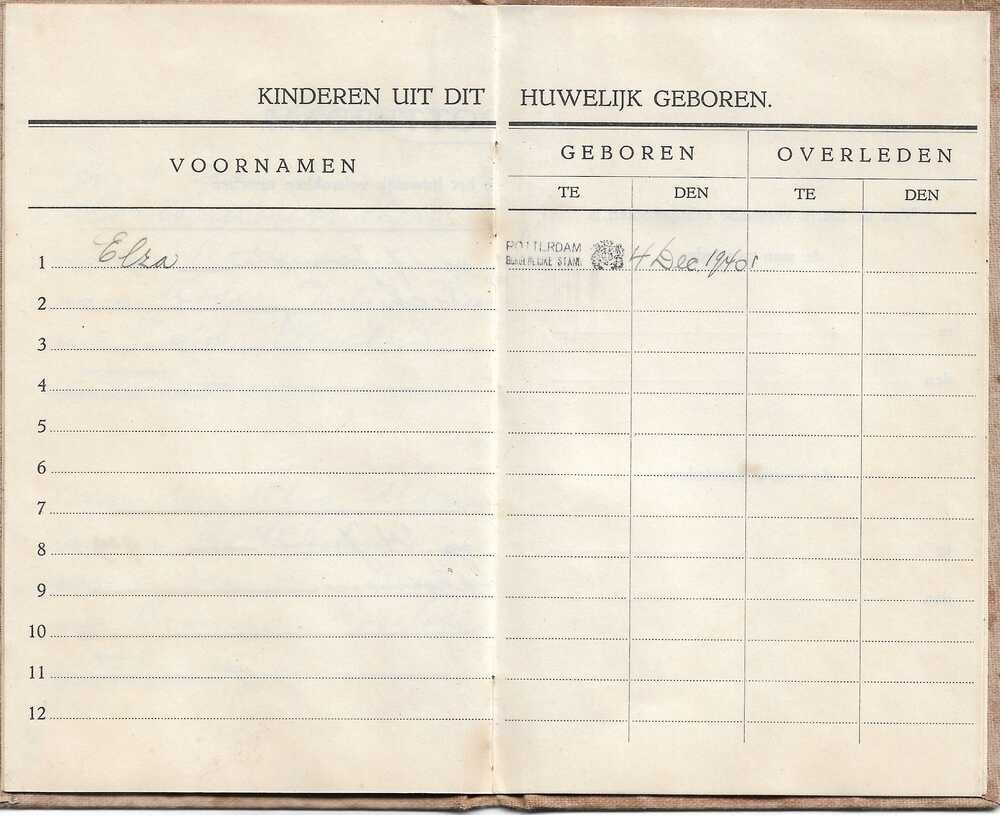 KINDEREN UIT DIT HUWELIJK GEBOREN.
VOORNAMEN GEBOREN OVERLEDEN
TE DEN TE DEN
1 Elza ROTTERDAM 4 Dec 1940
BURGERLIJKE STAND
2
3
4
5
6
7
8
9
10
11
12